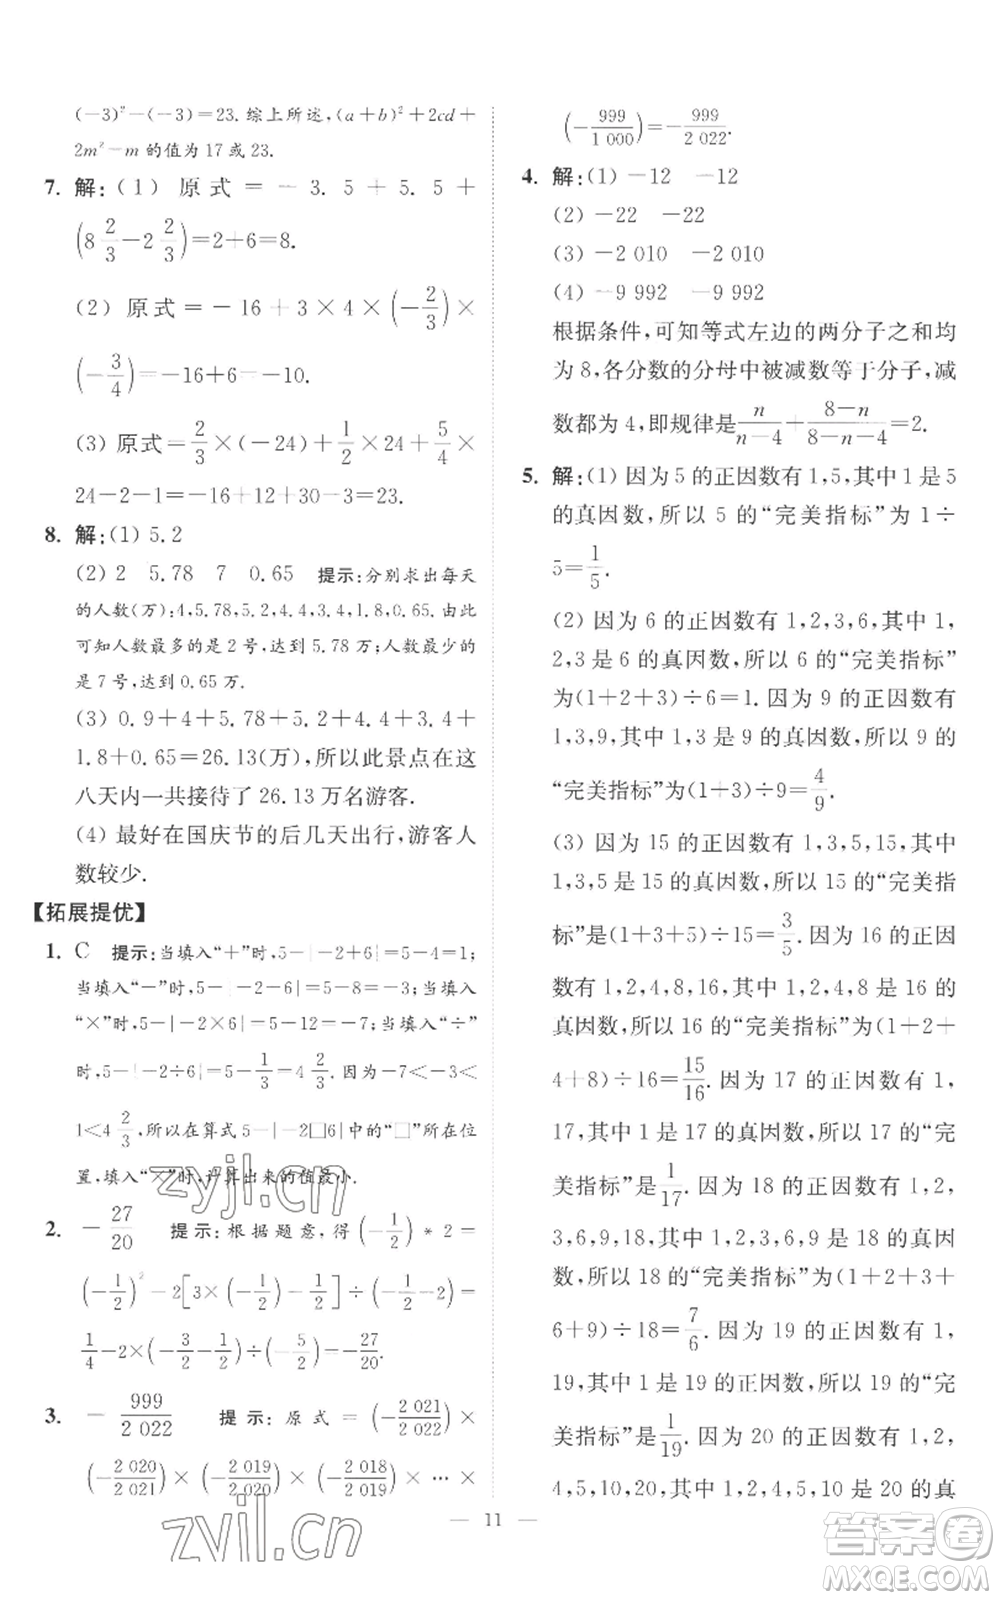 (−3)²−(−3)=23.综上所述,(a+b)²+2cd+
2m²−m的值为17或23.
7. 解:(1) 原式=−3.5+5.5+
(8 2/3−2 2/3)=2+6=8.
(2) 原式=−16+3×4×(−2/3)×
(−3/4)=−16+6=−10.
(3) 原式=2/3×(−24)+1/2×24+5/4×
24−2−1=−16+12+30−3=23.
8. 解:(1) 5.2
(2) 2 5.78 7 0.65 提示:分别求出每天
的人数(万):4,5.78,5.2,4.4,3.4,1.8,0.65,由此
可知人数最多的是2号,达到5.78万;人数最少的
是7号,达到0.65万.
(3) 0.9+4+5.78+5.2+4.4+3.4+
1.8+0.65=26.13(万),所以此景点在这
八天内一共接待了26.13万名游客.
(4) 最好在国庆节的后几天出行,游客人
数较少.
【拓展提优】
1. C 提示:当填入“+”时,5−|−2+6|=5−4=1;
当填入“−”时,5−|−2−6|=5−8=−3;当填入
“×”时,5−|−2×6|=5−12=−7;当填入“÷”
时,5−|−2÷6|=5−1/3=4 2/3.因为−7<−3<
1<4 2/3,所以在算式5−|−2□6|中的“□”所在位
置,填入“×”时,计算出来的值最小.
2. −27/20 提示:根据题意,得(−1/2)*2=
(−1/2)²−2[3×(−1/2)−1/2]÷(−1/2−2)=
1/4−2×(−3/2−1/2)÷(−5/2)=−27/20.
3. −999/2 022 提示:原式=(−2 021/2 022)×
(−2 020/2 021)×(−2 019/2 020)×(−2 018/2 019)×…×
(−999/1 000)=−999/2 022.
4. 解:(1) −12 −12
(2) −22 −22
(3) −2 010 −2 010
(4) −9 992 −9 992
根据条件,可知等式左边的两分子之和均
为8,各分数的分母中被减数等于分子,减
数都为4,即规律是n/(n−4)+(8−n)/(8−n−4)=2.
5. 解:(1) 因为5的正因数有1,5,其中1是5
的真因数,所以5的“完美指标”为1÷
5=1/5.
(2) 因为6的正因数有1,2,3,6,其中1,
2,3是6的真因数,所以6的“完美指标”
为(1+2+3)÷6=1.因为9的正因数有
1,3,9,其中1,3是9的真因数,所以9的
“完美指标”为(1+3)÷9=4/9.
(3) 因为15的正因数有1,3,5,15,其中
1,3,5是15的真因数,所以15的“完美指
标”是(1+3+5)÷15=3/5.因为16的正因
数有1,2,4,8,16,其中1,2,4,8是16的
真因数,所以16的“完美指标”为(1+2+
4+8)÷16=15/16.因为17的正因数有1,
17,其中1是17的真因数,所以17的“完
美指标”为1/17.因为18的正因数有1,2,
3,6,9,18,其中1,2,3,6,9是18的真因
数,所以18的“完美指标”为(1+2+3+
6+9)÷18=7/6.因为19的正因数有1,
19,其中1是19的真因数,所以19的“完
美指标”为1/19.因为20的正因数有1,2,
4,5,10,20,其中1,2,4,5,10是20的真
— 11 —
zyjl.cn
zyjl.cn
答案卷
MXQE.COM